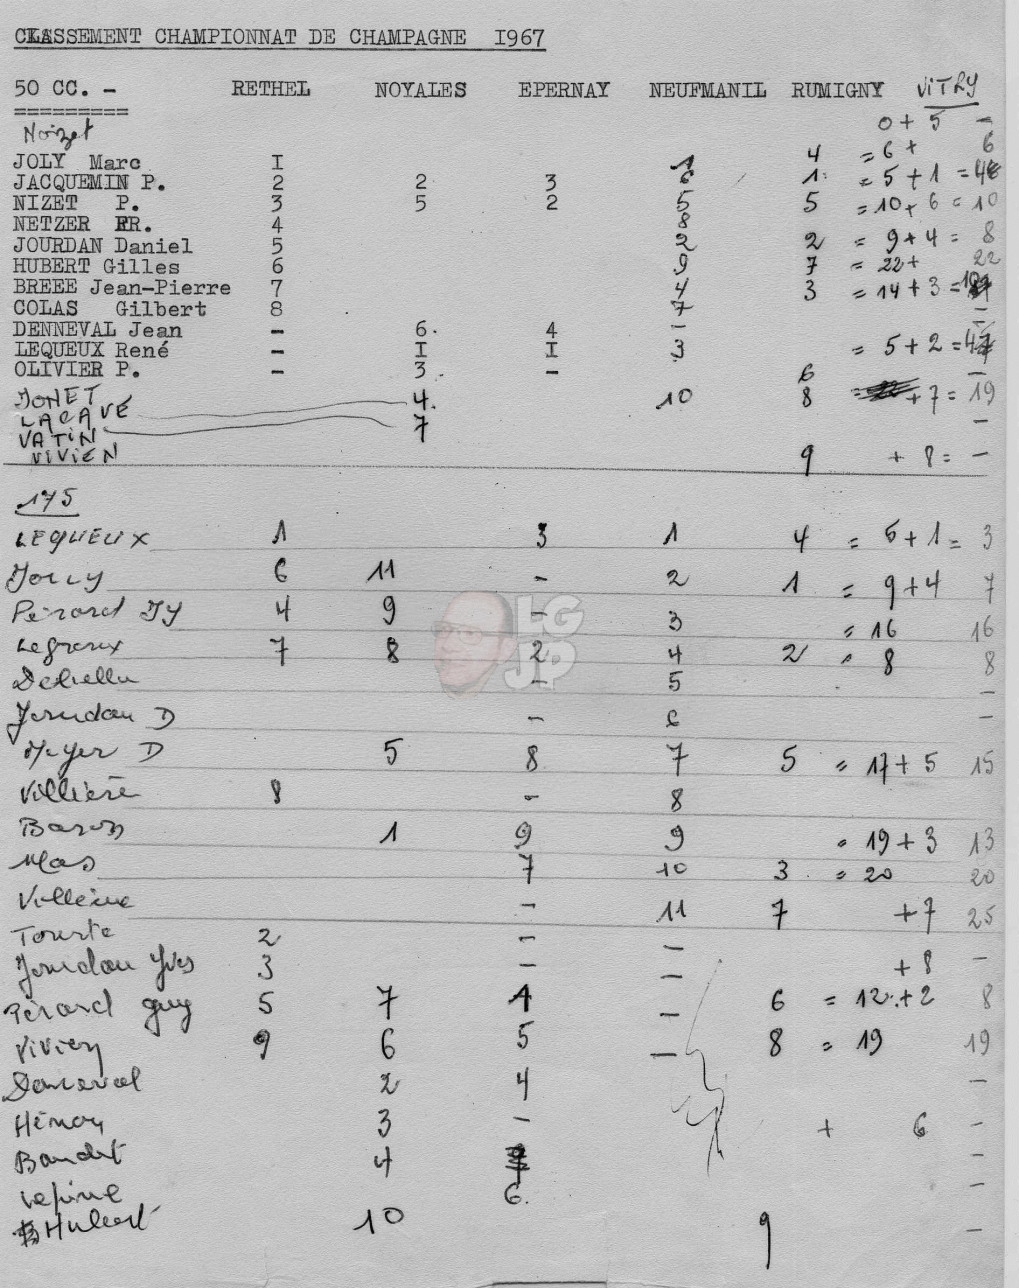 CLASSEMENT CHAMPIONNAT DE CHAMPAGNE I967
50 CC. - RETHEL NOYALES EPERNAY NEUFMANIL RUMIGNY VITRY
=========
Noizet 0 + 5 -
JOLY Marc I 1 4 = 6 + 6
JACQUEMIN P. 2 2 3 6 1 = 5 + 1 = 4
NIZET P. 3 5 2 5 5 = 10 + 6 = 10
NETZER FR. 4 8
JOURDAN Daniel 5 2 2 = 9 + 4 = 8
HUBERT Gilles 6 9 7 = 22 + 22
BREEE Jean-Pierre 7 4 3 = 14 + 3 =
COLAS Gilbert 8 7 -
DENNEVAL Jean - 6. 4 - -
LEQUEUX René - I I 3 = 5 + 2 = 4
OLIVIER P. - 3 - 6 -
JONET 4. 10 8 = + 7 = 19
LACAVE 7 -
VATIN
VIVIEN 9 + 8 = -
175
LEQUEUX 1 3 1 4 = 5 + 1 = 3
Jolly 6 11 - 2 1 = 9 + 4 7
Pérard JY 4 9 - 3 = 16 16
Legroux 7 8 2 4 2 = 8 8
- 5 -
Jourdan D - 6 -
Meyer D 5 8 7 5 = 17 + 5 15
Villière 8 - 8
Baron 1 9 9 = 19 + 3 13
Mas 7 10 3 = 20 20
- 11 7 + 7 25
Tourte 2 - -
Jourdan Yves 3 - - + 8 -
Pérard guy 5 7 1 - 6 = 12 + 2 8
Vivien 9 6 5 - 8 = 19 19
2 4 -
3 - + 6 -
Baudet 4 -
Lepine 6. -
Hubert 10 9 -
LG
JP